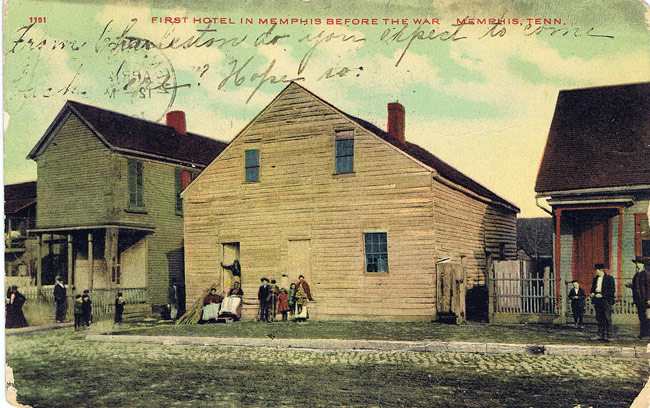 1151 FIRST HOTEL IN MEMPHIS BEFORE THE WAR MEMPHIS, TENN.
From Charleston do you expect to come
back here? Hope so.
APR
12